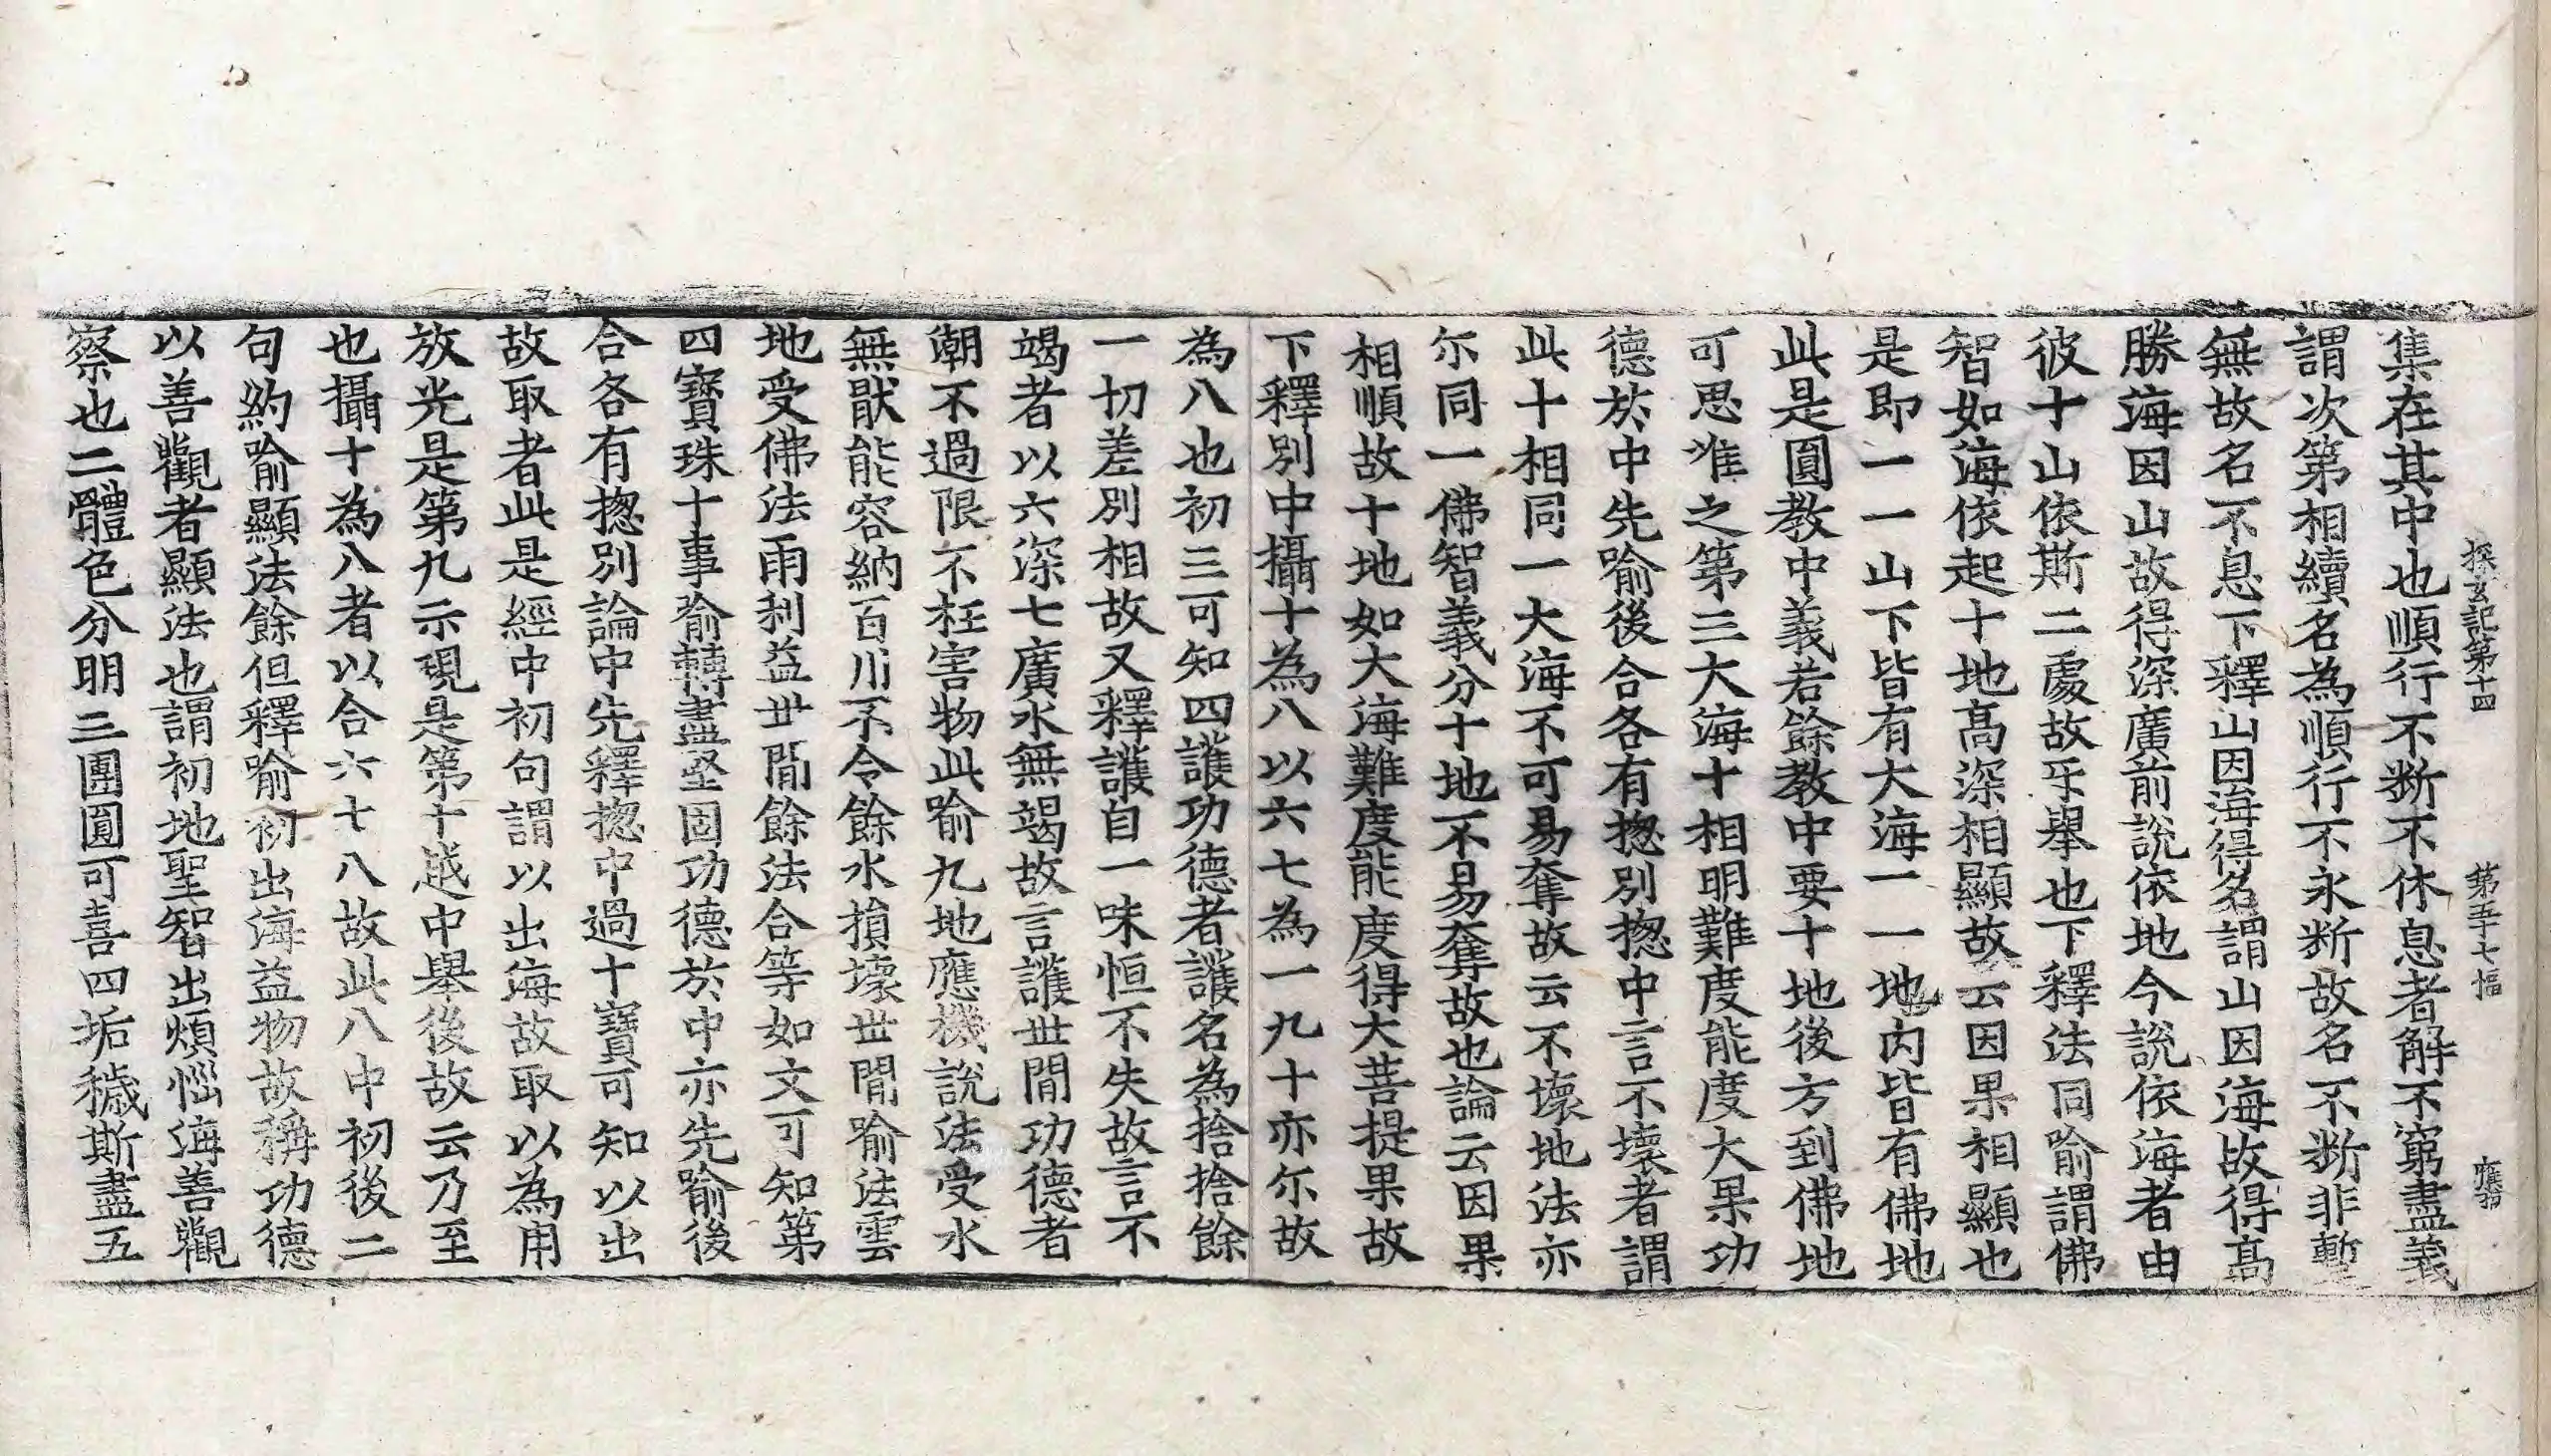 探玄記第十四 第五十七幅 應
集在其中也順行不断不休息者解不窮盡義
謂次第相續名為順行不永断故名不断非暫
無故名不息下釋山因海得名謂山因海故得髙
勝海因山故得深廣前說依地今說依海者由
彼十山依斯二處故㸦舉也下釋法同喻謂佛
智如海依起十地髙深相顯故云因果相顯也
是即一一山下皆有大海一一地內皆有佛地
此是圓教中義若餘教中要十地後方到佛地
可思准之第三大海十相明難度能度大果功
德於中先喻後合各有揔別揔中言不壞者謂
此十相同一大海不可易奪故云不壞地法亦
尓同一佛智義分十地不易奪故也論云因果
相順故十地如大海難度能度得大菩提果故
下釋別中攝十為八以六七為一九十亦尓故
為八也初三可知四護功德者護名為捨捨餘
一切差別相故又釋護自一味恒不失故言不
竭者以六深七廣水無竭故言護丗間功德者
潮不過限不枉害物此喻九地應機說法受水
無猒能容納百川不令餘水損壞丗間喻法雲
地受佛法雨利益丗間餘法合等如文可知第
四寶珠十事喻轉盡堅固功德於中亦先喻後
合各有揔別論中先釋揔中過十寶可知以出
故取者此是經中初句謂以出海故取以為用
放光是第九示現是第十越中舉後故云乃至
也攝十為八者以合六七八故此八中初後二
句約喻顯法餘但釋喻初出海益物故稱功德
以善觀者顯法也謂初地聖智出煩惱海善觀
察也二體色分明三團圓可喜四垢穢斯盡五